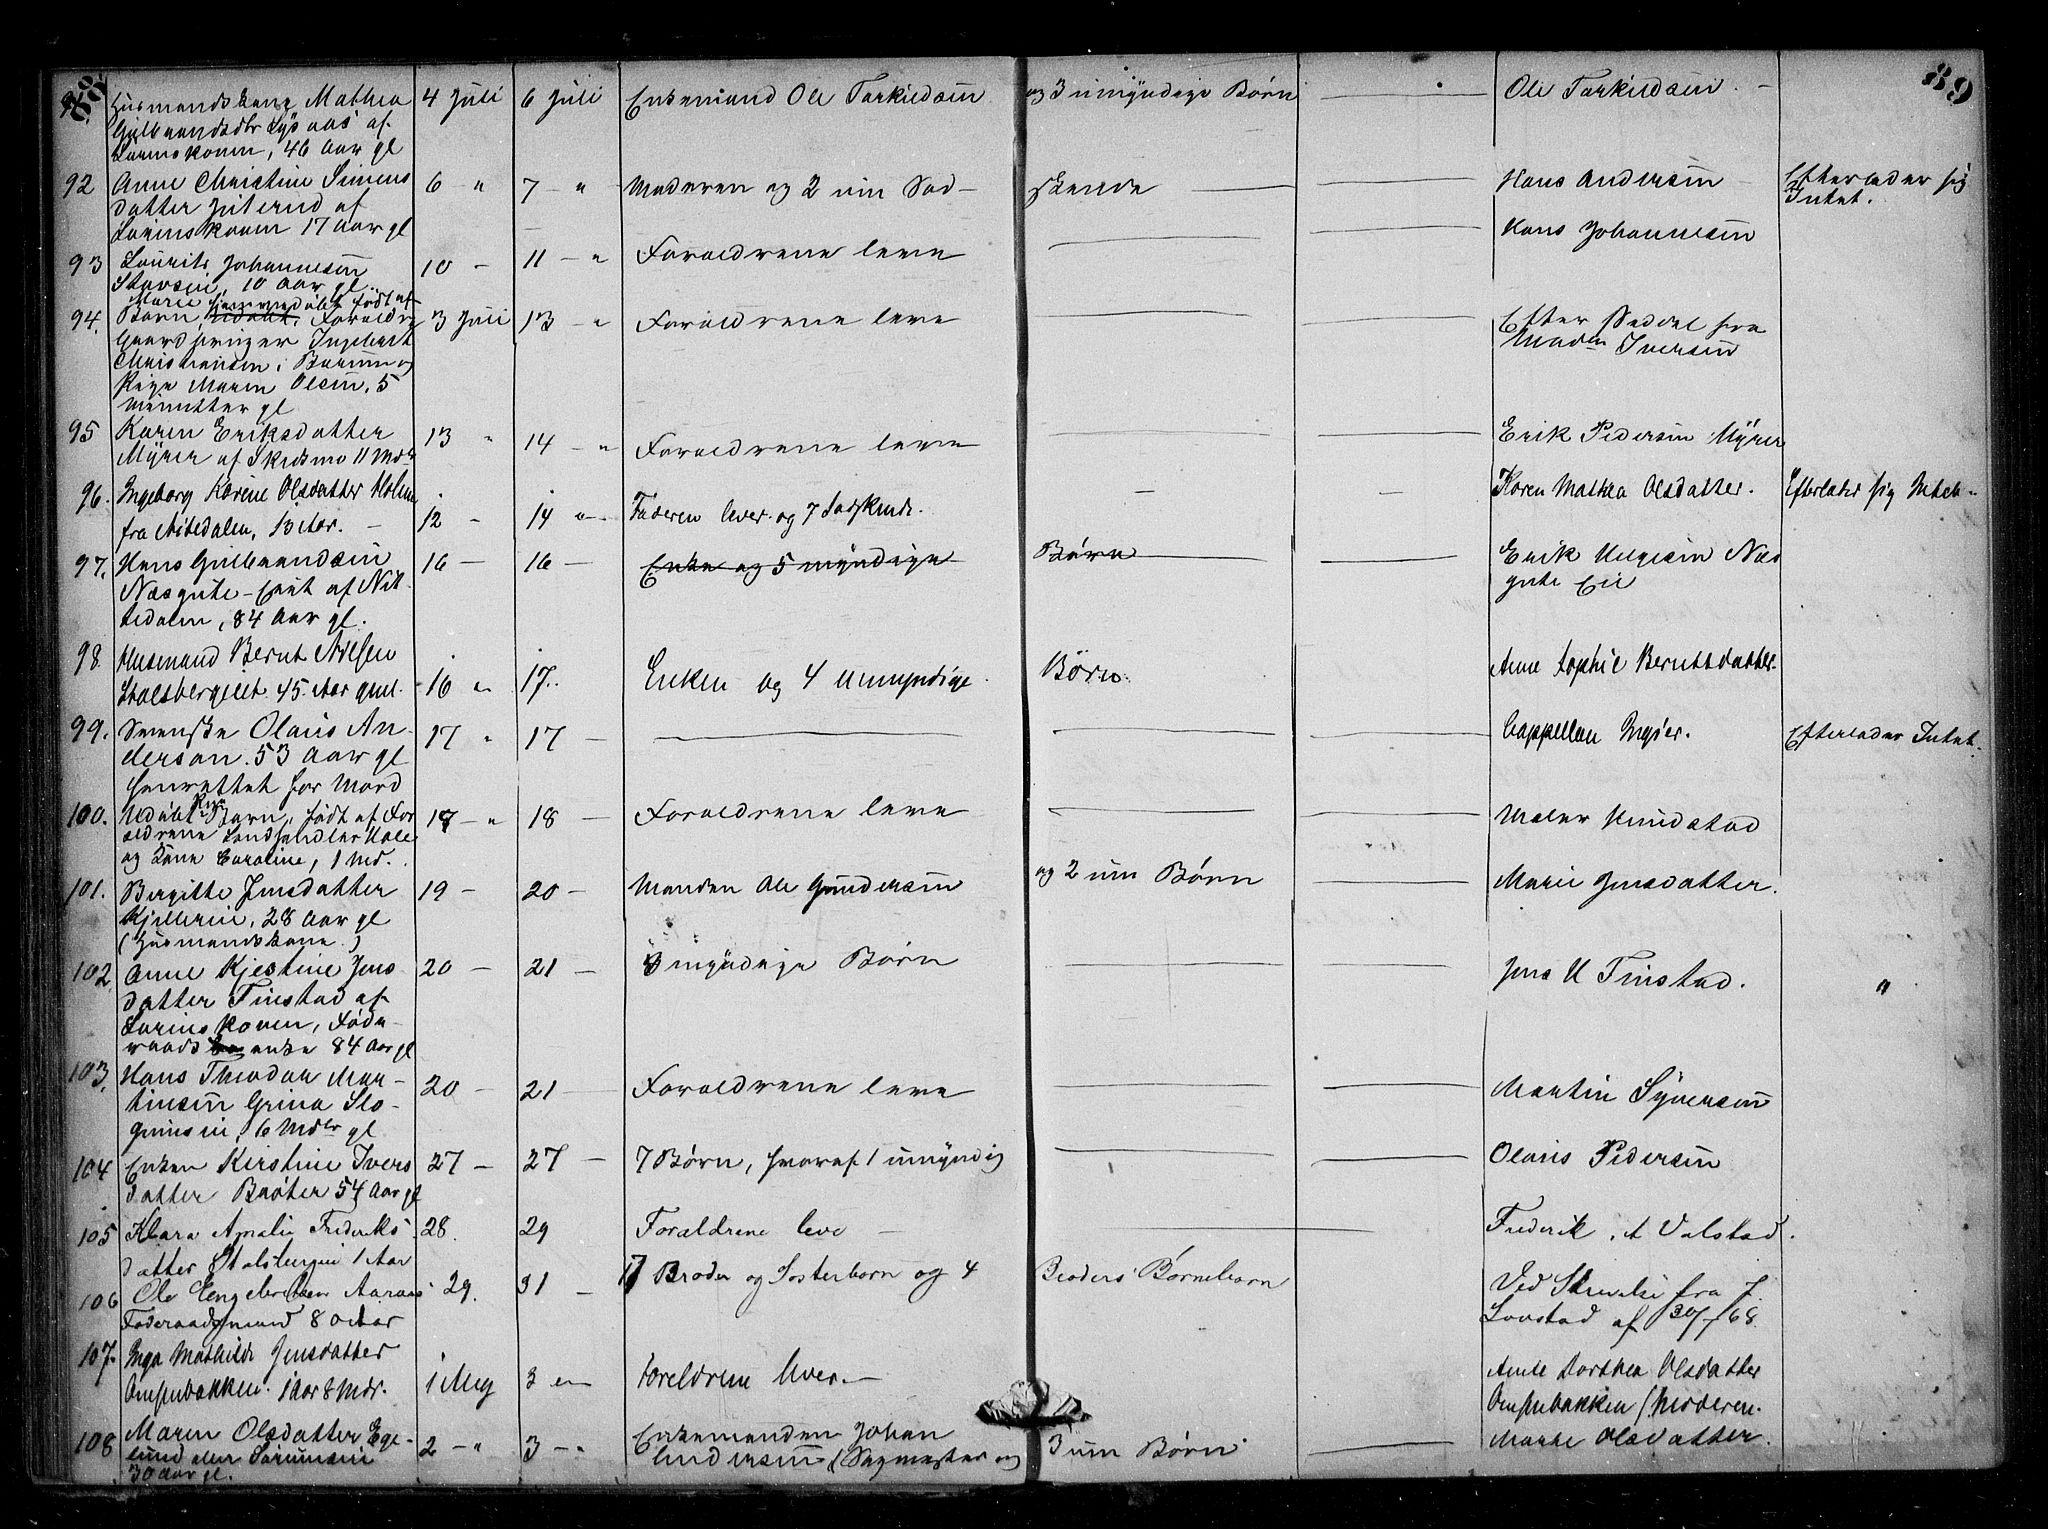 88
89
91. Husmandskone Mathea
Gulbrandsdtr Lysaas af
Lørenskoven, 46 Aar gl
4 Juli
6 Juli
Enkemand Ole Torkildsen
og 3 umyndige Børn
Ole Torkildsen
92 Anne Christine Simens
datter af
Lørenskoven 17 Aar gl
6 - "
7 - "
Moderen og 2 um Sød-
skende
Hans Andersen
Efterlader sig
Intet.
93 Laurits Johannesen
10 Aar gl.
10 -
11 - "
Forældrene leve
Hans Johannesen
94. Marie
Barn, født af
Forældre
Ingebret
Christiansen i Bærum og
Pige Maren Olsen, 5
minutter gl
3 Juli
13 - "
Forældrene leve
Efter Seddel fra
Madm Iversen
95 Karen Eriksdatter
Myrer af Skedsmo 11 Mdr
13 "
14 - "
Forældrene leve
Erik Pedersen Myrer
96. Ingeborg Karine Olsdatter Holm
fra Nitedalen, 13 Aar. -
12 -
14 "
Faderen lever og 7 Sødskende.
Karen Mathea Olsdatter.
Efterlader sig Intet.
97. Hans Gulbrandsen
Næsgute-Eiet af Nit-
tedalen, 84 Aar gl.
16 -
16 -
Enke og 5 myndige
Børn
Erik Helgesen Næs
gute Eie
98. Husmand Bernt Nilsen
Stalsbergeiet 45 Aar gml.
16 "
17.
Enken og 4 Umyndige
Børn.
Anne Sophie Berntsdatter.
99. Svenske Olaus An-
derson. 53 Aar gl
henrettet for Mord
17 "
17 -
Cappellan Engøer.
Efterlader Intet.
100. Udøbt Pige Barn, født af For
ældrene Landhandler Hole
og Kone Caroline, 1 Md.
18 - "
18 -
Forældrene leve
Maler Knudstad
101. Birgitte Jensdatter
Kjellereie, 28 Aar gl
(Husmandskone.)
19 -
20 -
Manden Ole Gundersen
og 2 um Børn
Marie Jensdatter.
102. Anne Kjestine Jens
datter Finstad af
Lørenskoven, Føde-
raads enke 84 Aar gl
20 -
21 -
8 myndige Børn
Jens H Finstad.
"
103. Hans Theodor Mar-
tinsen Grina Slo-
6 Mdr gl
20 -
21 -
Forældrene leve
Martin Syversen
104 Enken Kirstine Ivers
datter Braater 54 Aar gl
27 -
27 -
7 Børn, hvoraf 1 umyndig
Olaus Pedersen
105 Klara Amalie Frederiks
datter Stalsbergeie 1 Aar
28.
29
Forældrene leve
Frederik A Valstad.
106 Ole Engebretsen Aaraas
Føderaadsmand 80 Aar
29.
31 -
17 Broder og Søsterbørn og 4
Broders Børnebørn
Ved Skrivelse fra J.
Lovstad af 30/7 68.
107. Inga Mathilde Jensdatter
1 Aar 8 Mdr.
1 Aug
3 "
Foreldrene lever.
Anne Dorthea Olsdatter
(Moderen.
108 Maren Olsdatter Ege-
lund
30 Aar gl.
2 - "
3 - "
Enkemanden Johan
Andersen (Sagmester og
3 um Børn
Marte Olsdatter.